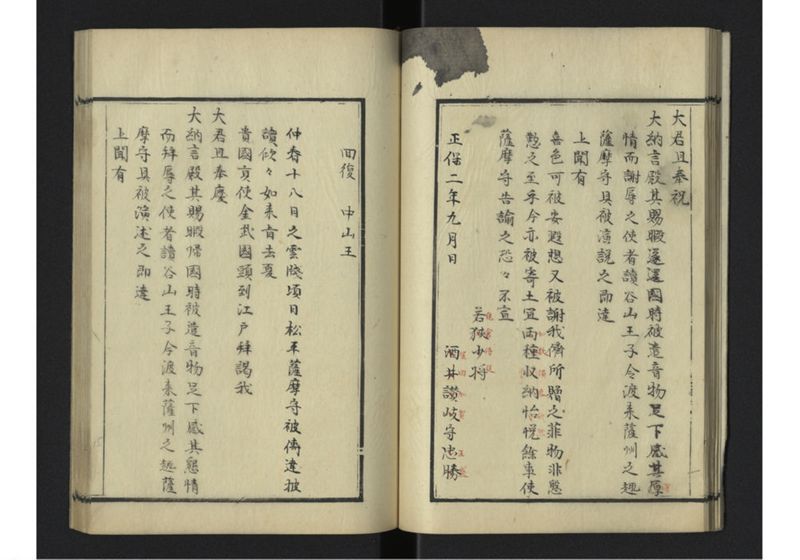 大君且奉祝
大納言殿其賜暇還國時被遣音物足下感其厚
情而謝辱之使者讀谷山王子今渡来薩州之趣
薩摩守具被演説之即達
上聞有
喜色可被安遐想又被謝我儕所贈之菲物非懇
懃之至乎今亦被寄土宜両種収納怡悦餘事使
薩摩守告諭之恐々不宣
正保二年九月日
若狭少将
酒井讃岐守忠勝
回復 中山王
仲春十八日之雲牋頃日松平薩摩守被傳達披
讀欣々如来旨去夏
貴國貢使金武國頭到江戸拜謁我
大君且奉慶
大納言殿其賜暇帰國時被遣音物足下感其懇情
而拜辱之使者讀谷山王子今渡来薩州之趣薩
摩守具被演述之即達
上聞有